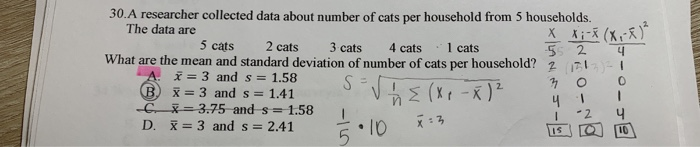 30.A researcher collected data about number of cats per household from 5 households.
The data are
5 cats 2 cats 3 cats 4 cats 1 cats
What are the mean and standard deviation of number of cats per household?
A. x̄ = 3 and s = 1.58
B x̄ = 3 and s = 1.41
C. x̄ = 3.75 and s = 1.58
D. x̄ = 3 and s = 2.41
S = √(1/n Σ (Xi - x̄)²
1/5 · 10 x̄ = 3
X Xi-x̄ (Xi-x̄)²
5 2 4
2 1
3 0 0
4 1 1
1 -2 4
15 0 10